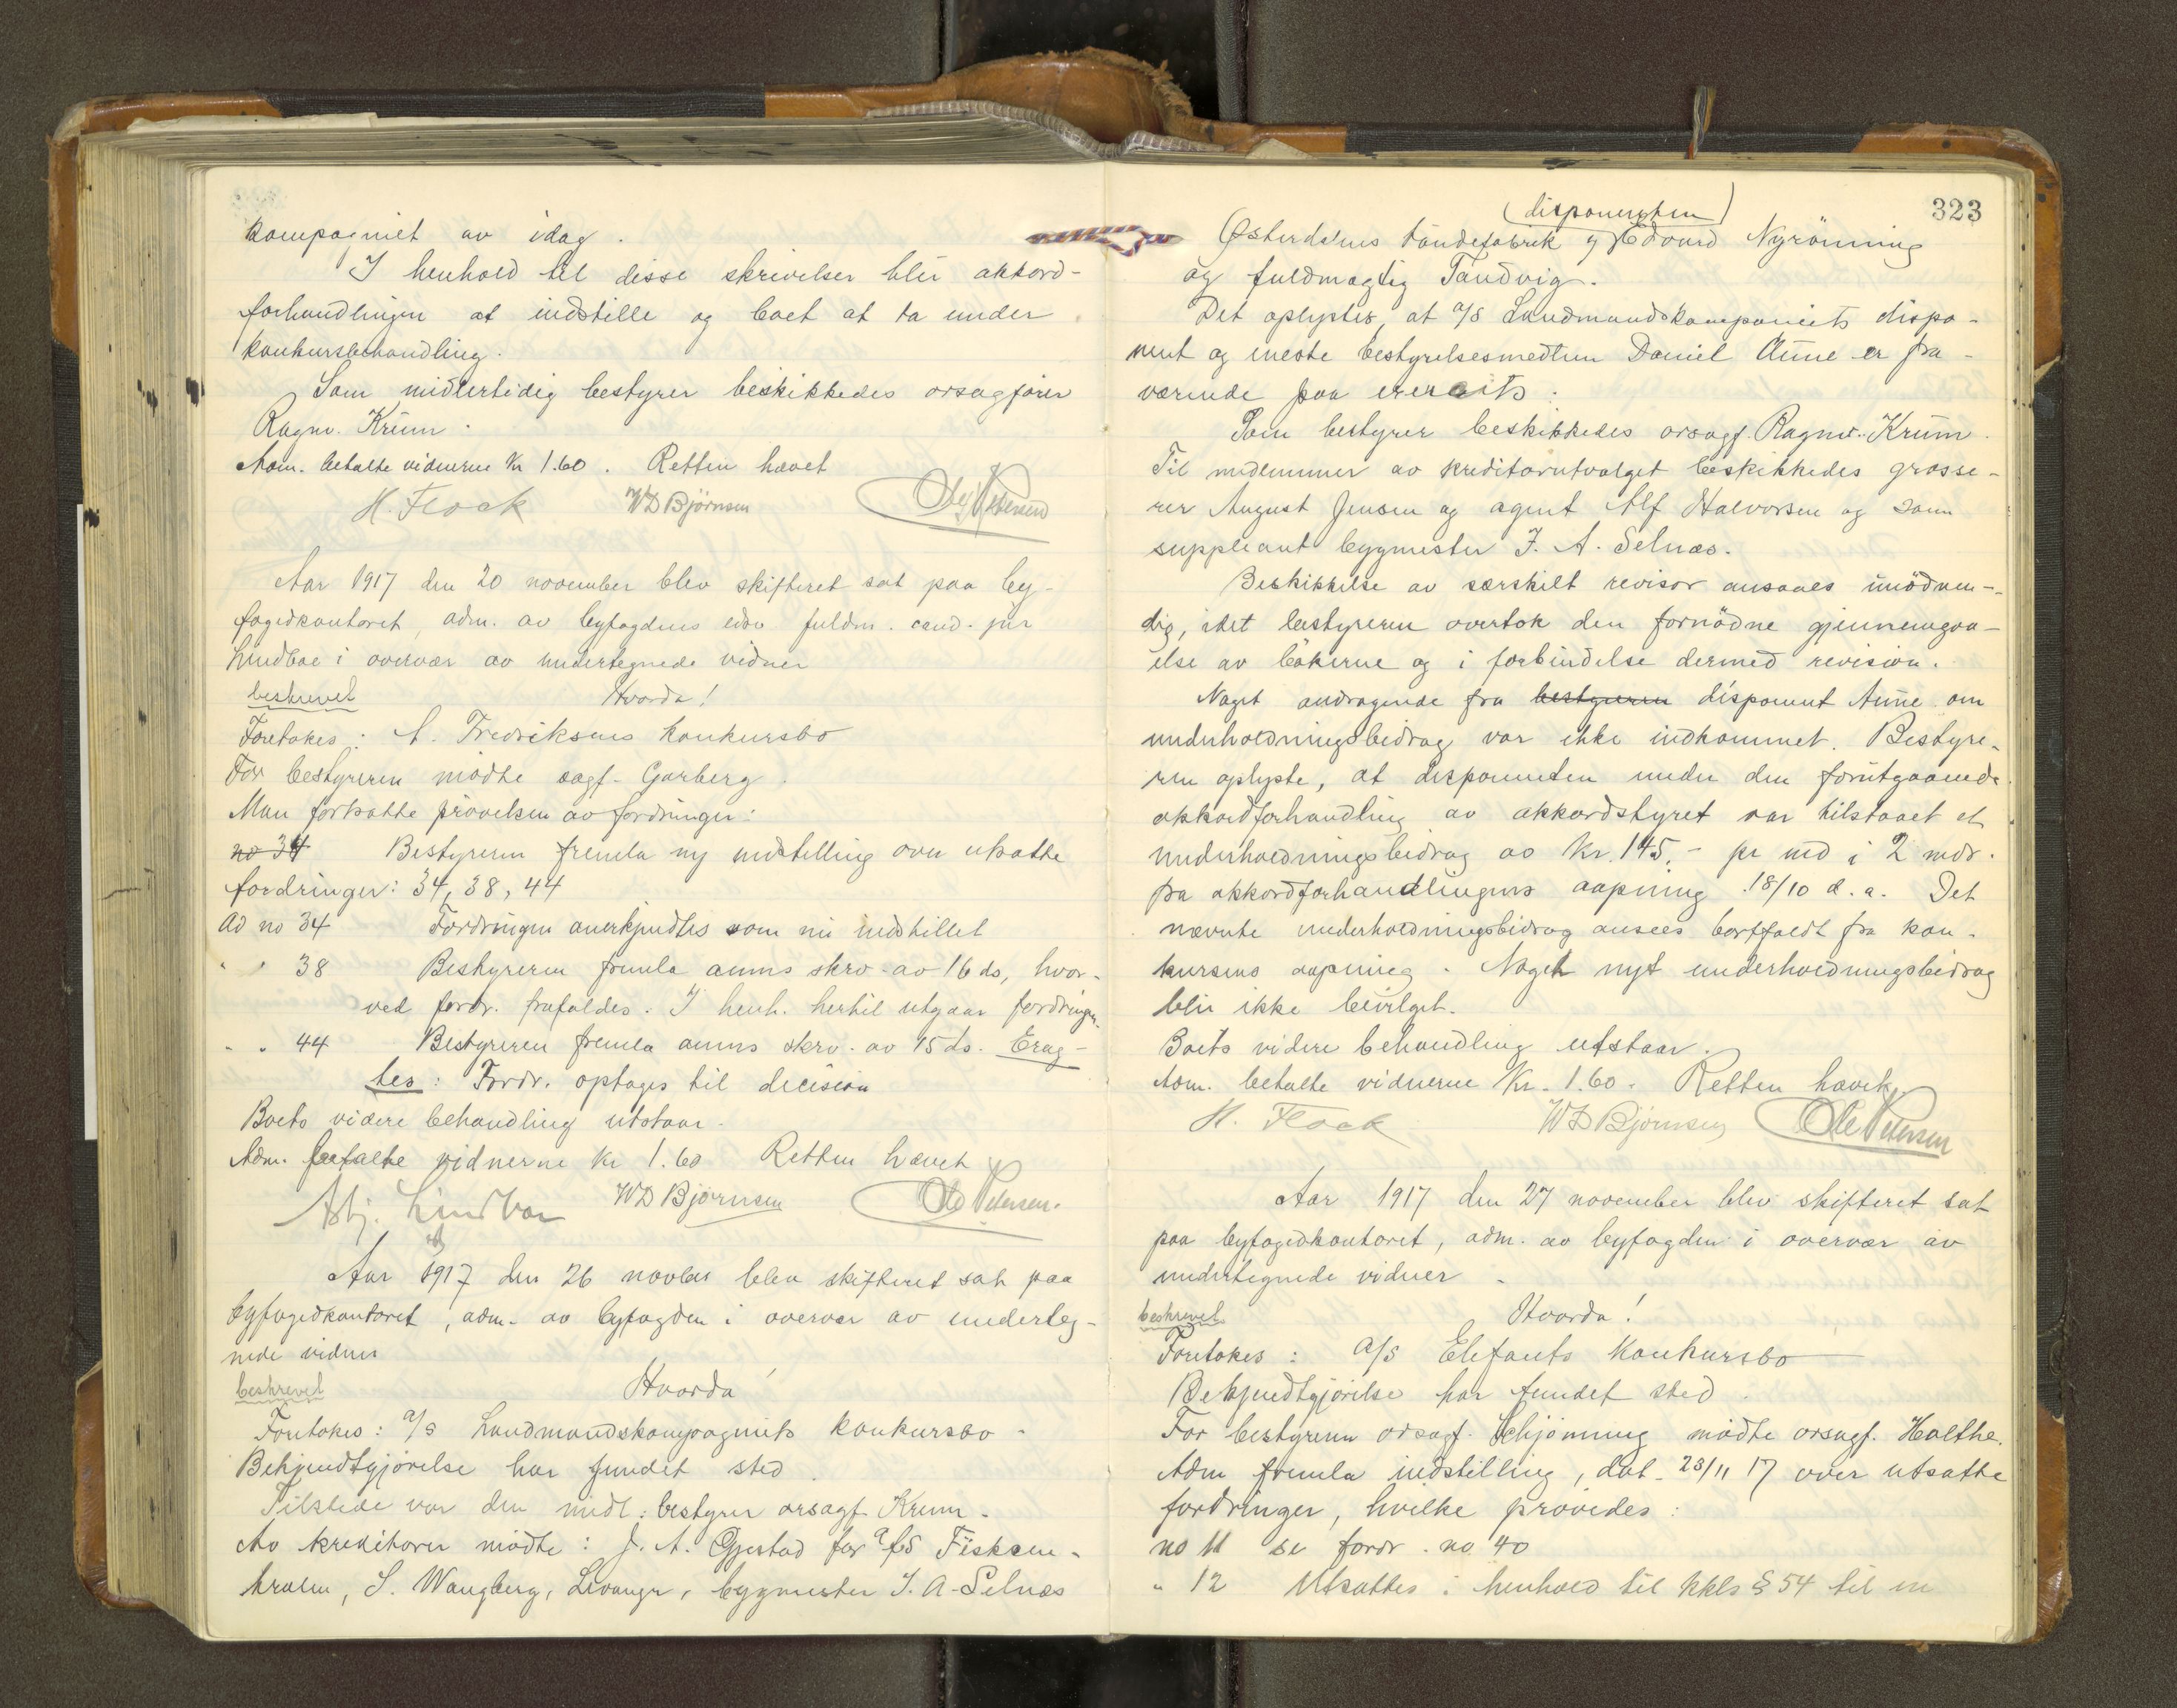 kompagniet av idag.
I henhold til disse skrivelser blir akkord-
forhandlingen at indstille og boet at ta under
konkursbehandling.
Som midlertidig bestyrer beskikkedes orsagfører
Ragnv. Krüm.
Adm. betalte vidnerne Kr 1.60. Retten hævet
H. Flock WD Bjørnsen Ole Petersen
Aar 1917 den 20 november blev skifteret sat paa by-
fogedkontoret, adm. av byfogdens edsv fuldm. cand. jur
Lindboe i overvær av undertegnede vidner
beskrevet Hvorda!
Foretokes: A. Fredriksens konkursbo
For bestyreren mødte sagf. Garberg.
Man fortsatte prøvelsen av fordringer:
no 34 Bestyreren fremla ny indstilling over utsatte
fordringer: 34, 38, 44
Ad no 34 Fordringen anerkjendtes som nu indstillet
" " 38 Bestyreren fremla anms skrv. av 16 ds, hvor-
ved fordr. frafaldes. I henh. hertil utgaar fordringen.
" " 44 Bestyreren fremla anms skrv. av 15 ds. Erag-
tes: Fordr. optages til decision
Boets videre behandling utstaar.
Adm. betalte vidnerne Kr 1.60 Retten hævet
Asbj. Lindboe WD Bjørnsen Ole Petersen.
Aar 1917 den 26 novber blev skifteret sat paa
byfogedkontoret, adm. av byfogden i overvær av underteg-
nede vidner
beskrevet Hvorda!
Foretokes: A/S Landmandskompagniets konkursbo.
Bekjendtgjørelse har fundet sted.
Tilstede var den midl. bestyrer orsagf Krüm.
Av kreditorer mødte: J. A. Gjestad for A/S Fiskeen-
tralen, S. Wangberg, Levanger, bygmester J. A. Selnæs
323
(disponenten)
Østerdalens tøndefabrik v/ Edvard Nyrönning
og fuldmægtig Tandvig.
Det oplystes, at A/S Landmandskompaniets dispo-
nent og eneste bestyrelsesmedlem Daniel Aune er fra-
værende paa exercits.
Som bestyrer beskikkedes orsagf. Ragnv. Krüm.
Til medlemmer av kreditorutvalget beskikkedes grosse-
rer August Jensen og agent Alf Halvorsen og som
suppleant bygmester J. A. Selnæs.
Beskikkelse av særskilt revisor ansaaes unødven-
dig, idet bestyreren overtok den fornødne gjennemgaa-
else av bökerne og i forbindelse dermed revision.
Noget andragende fra bestyreren disponent Aune om
underholdningsbidrag var ikke indkommet. Bestyre-
ren oplyste, at disponenten under den forutgaaende
akkordforhandling av akkordstyret var tilstaaet et
underholdningsbidrag av Kr. 145.- pr md i 2 mdr.
fra akkordforhandlingens aapning 18/10 d.a. Det
nævnte underholdningsbidrag ansees bortfaldt fra kon-
kursens aapning. Noget nyt underholdningsbidrag
blir ikke bevilget.
Boets videre behandling utstaar.
Adm. betalte vidnerne Kr. 1.60. Retten hævet
H. Flock WD Bjørnsen Ole Petersen
Aar 1917 den 27 november blev skifteret sat
paa byfogedkontoret, adm. av byfogden i overvær av
undertegnede vidner.
beskrevet Hvorda!
Foretokes: A/S Elefants konkursbo
Bekjendtgjørelse har fundet sted.
For bestyreren orsagf. Schjønning mødte orsagf. Holthe.
Adm fremla indstilling, dat. 23/11 17 over utsatte
fordringer, hvilke prøvedes:
no 11 se fordr. no 40
" 12 Utsattes i henhold til kkls § 54 til en